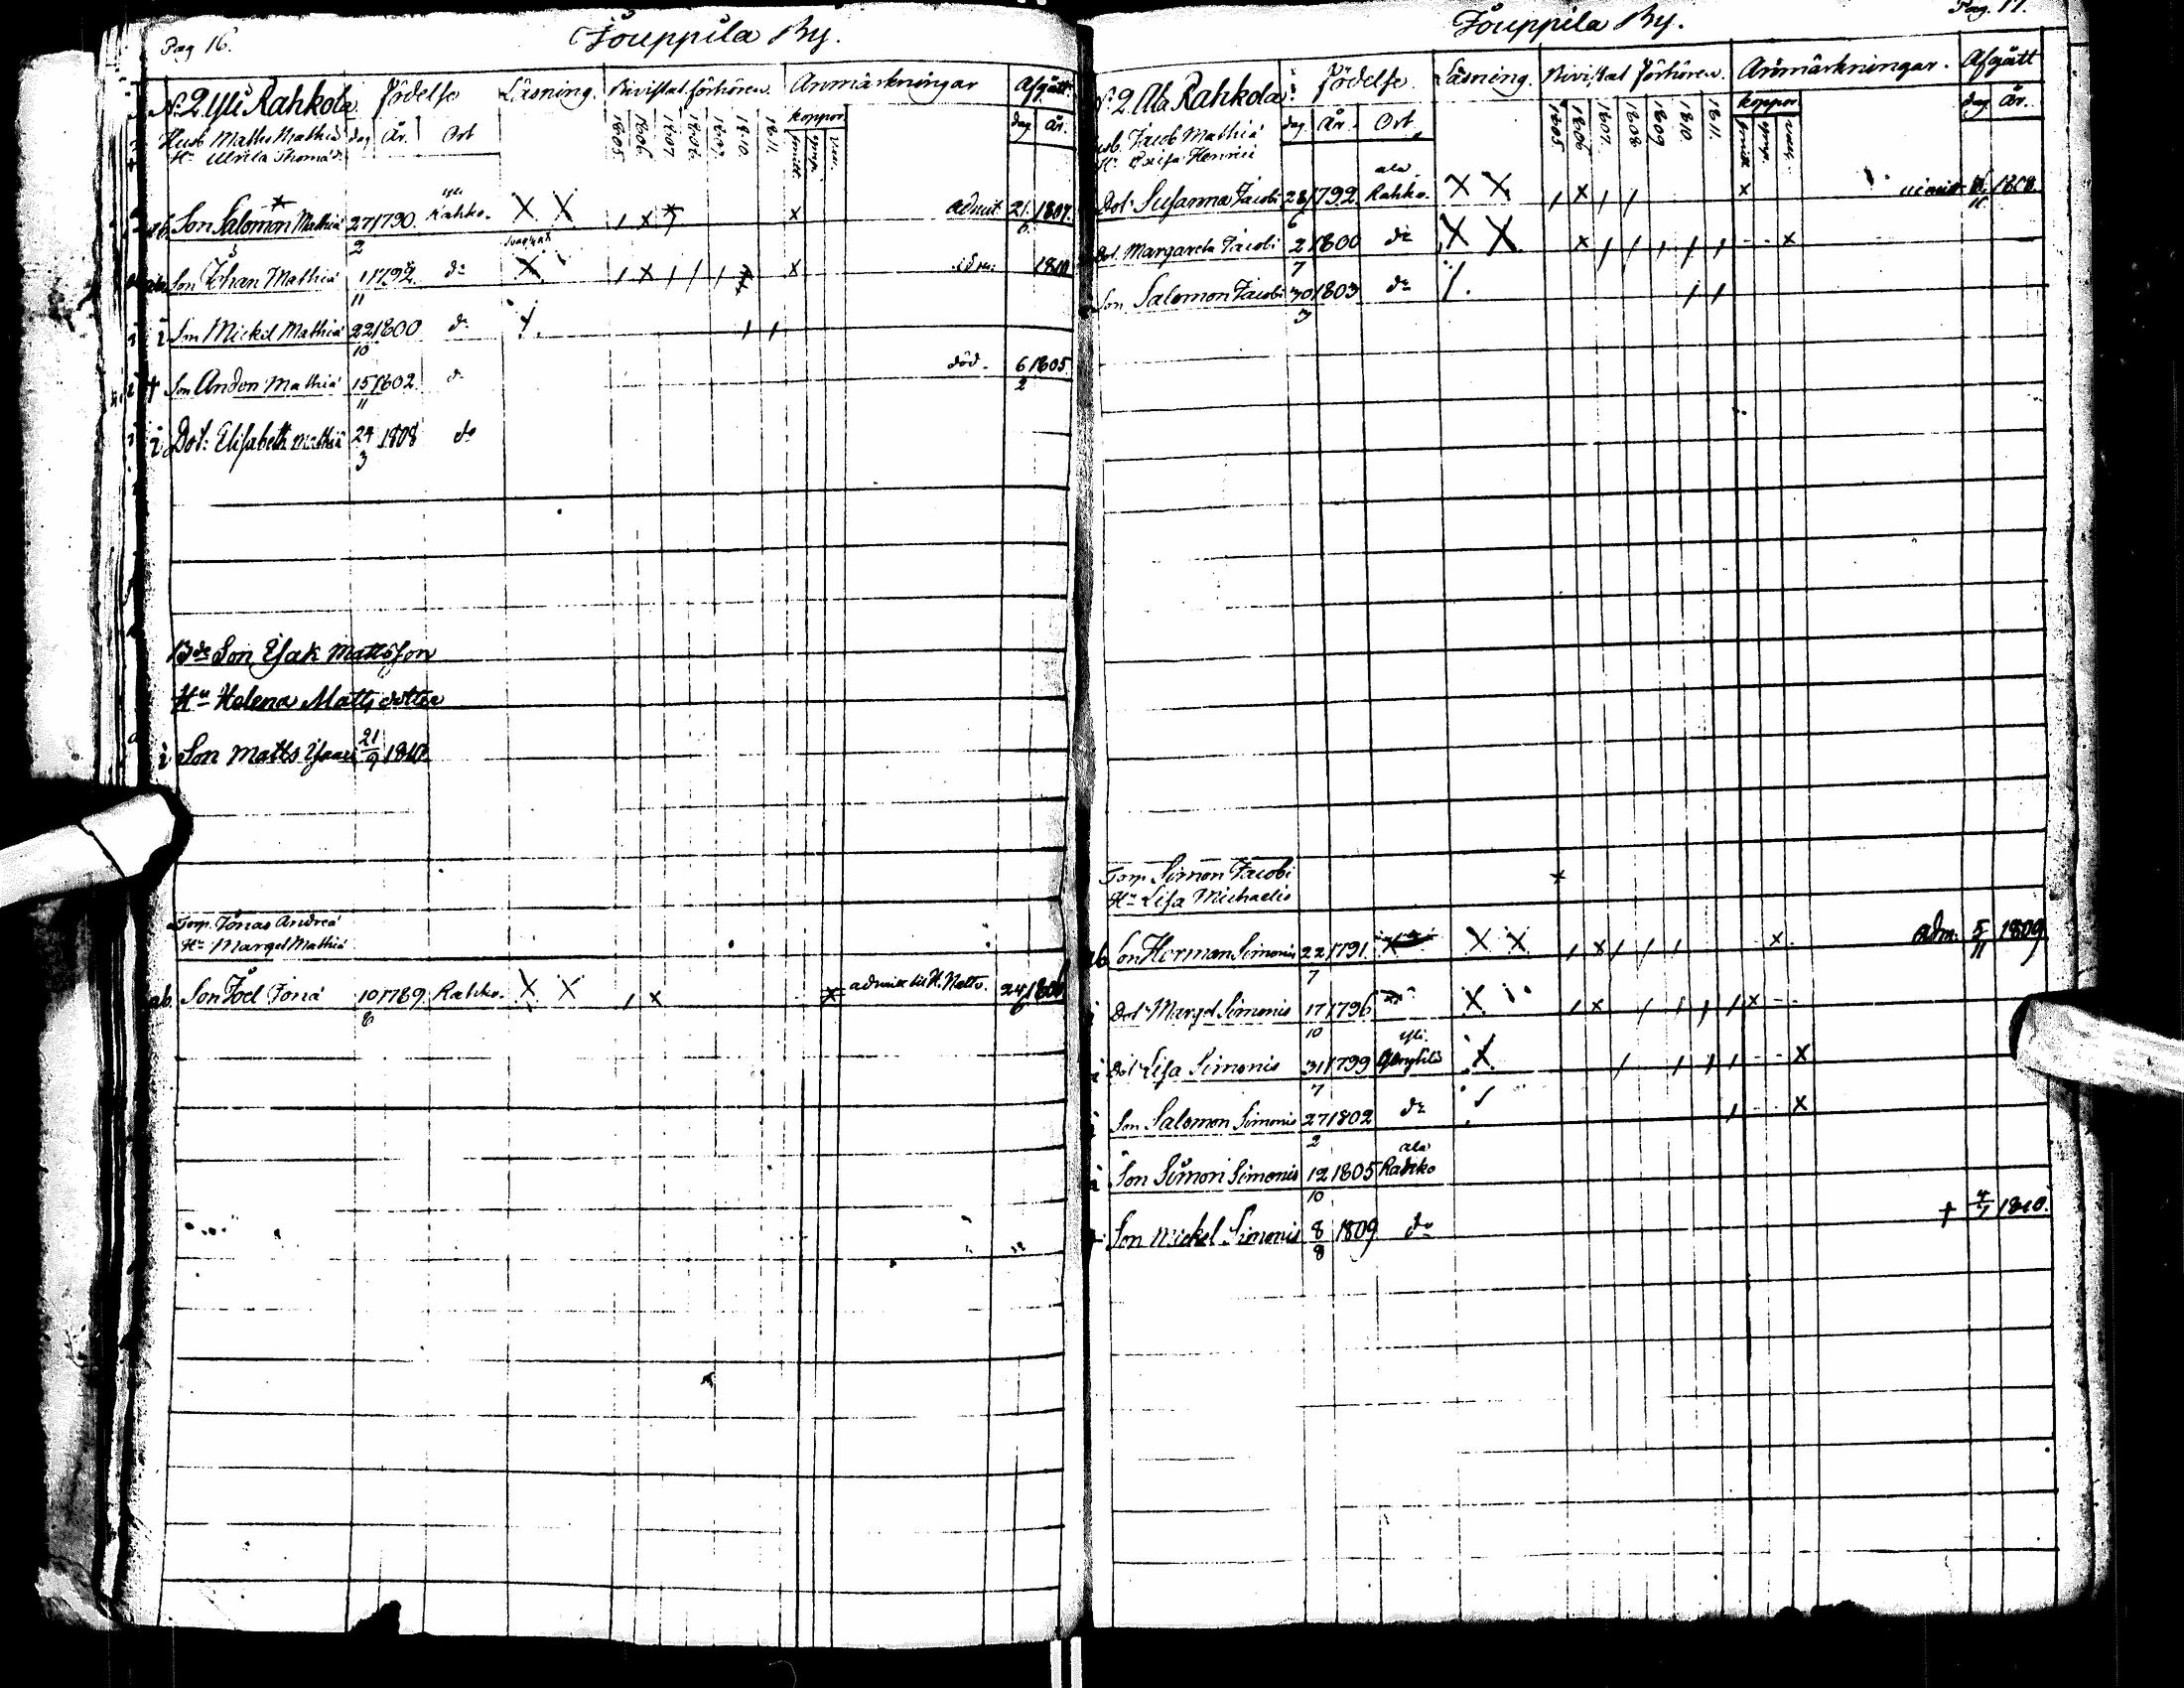 Pag 16.
Jouppila By.
No 2 Yli Rahkola
Födelse
Läsning.
Bivistat förhören
Anmärkningar
Afgått
Husb Matts Mathiæ
Hu Ulrila Thomæ
dag År. Ort
1805 1806 1807 1808 1809 1810. 1811.
koppor
dag År.
ab. Son Salomon Mathiæ 27/2 1790. Yli Rahko. X X admit 21/6 1807.
Son Johan Mathiæ 1/11 1792 do X 1810
i Son Mickel Mathiæ 22/10 1800 do
† Son Andon Mathiæ 15/11 1802. do död. 6/2 1805.
i Dot: Elisabeth Mathiæ 24/3 1808 do
Bde Son Esak Mattsson
Hu Helena Mattsdotter
i Son Matts Isaaci 21/9 1810.
Torp. Jonas Andreæ
Hu Marget Mathiæ
ab. Son Joel Jonæ 10/8 1789. Rahko. X X
Pag. 17.
Jouppila By.
No 2 Ala Rahkola
Födelse.
Läsning.
Bivistat förhören.
Anmärkningar.
Afgått
Husb. Jacob Mathiæ
Hu Henrici
dag År. Ort
1805 1806 1807. 1808 1809 1810. 1811.
koppor
dag År.
Dot. Susanna Jacobi 28/6 1792. ala Rahko. X X
Dot. Margareta Jacobi 2/7 1800 do X X
Son Salomon Jacobi 30/3 1803 do
Torp. Simon Jacobi
Hu Lisa Michaelis
ab Son Herman Simonis 22/7 1791. X X adm. 5/11 1809
Dot. Marget Simonis 17/10 1796 X
i Dot. Lisa Simonis 31/7 1799 Yli X
i Son Salomon Simonis 27/2 1802 do
i Son Simon Simonis 12/10 1805 ala Rahko
Son Mickel Simonis 8/8 1809 do † 4/7 1810.